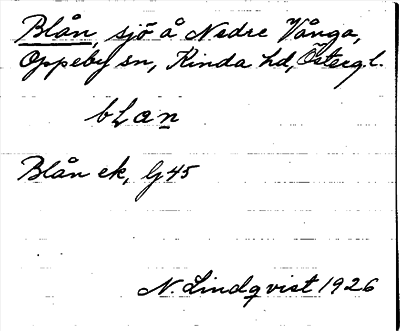 Blån, sjö å Nedre Vånga,
Oppeby sn, Kinda hd, Östergl.
blan
Blån ek, G 45
N. Lindqvist 1926